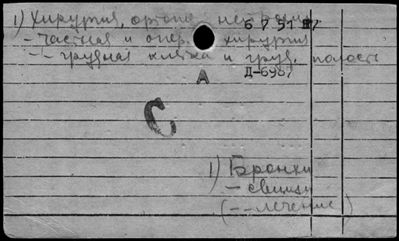 1) Хирургия, ортопе
6 7 51 87
- частная и опер. хирургия
-- грудная клетка и груд. полость
А
Д-6987
С
1) Бронхи
- свищи
(-- лечение)